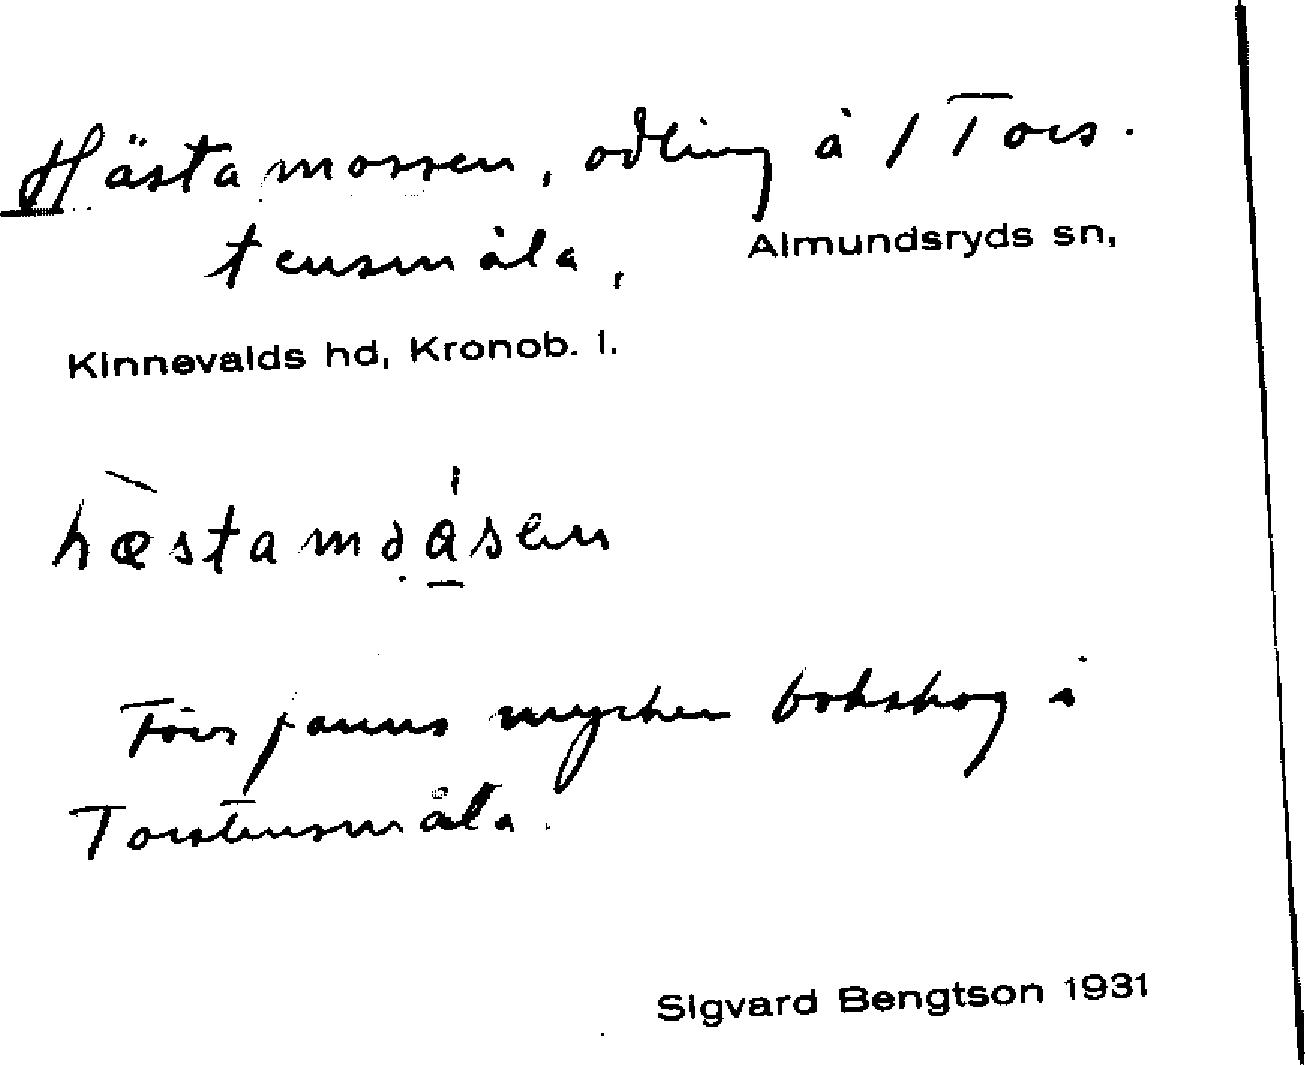 Hästamossen, odling å 1 Tors-
tensmåla, Almundsryds sn,
Kinnevalds hd, Kronob. l.
hæstamåsen
Förr fanns mycken bokskog i
Torstensmåla.
Sigvard Bengtson 1931